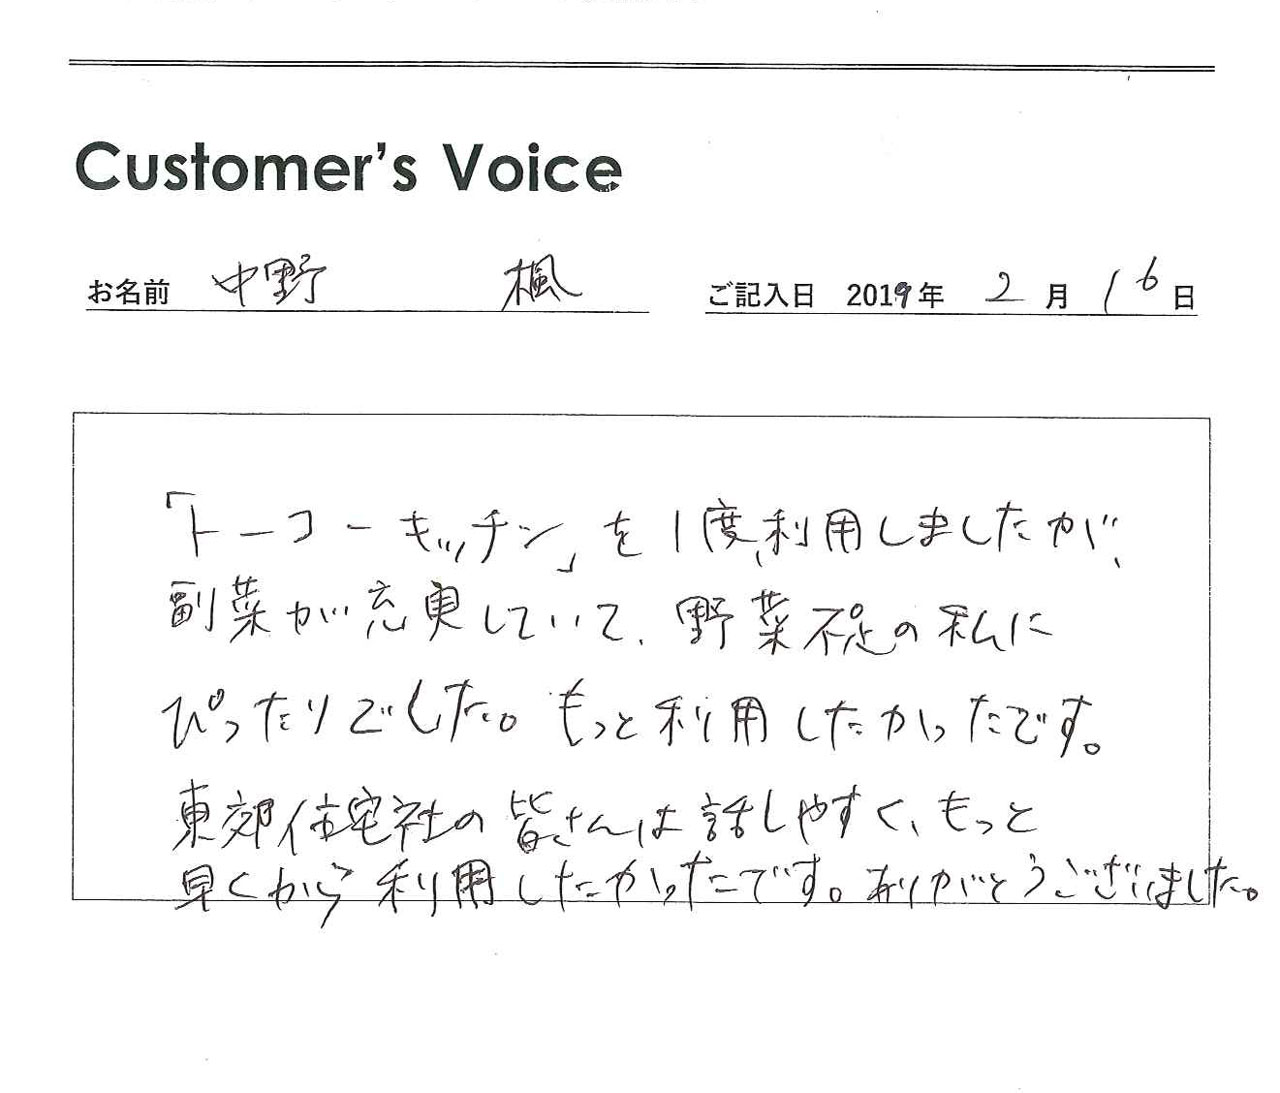 Customer's Voice
お名前 中野 楓 ご記入日 2019年 2月16日
「トーコーキッチン」を1度、利用しましたが、
副菜が充実していて、野菜不足の私に
ぴったりでした。もっと利用したかったです。
東郊住宅社の皆さんは話しやすく、もっと
早くから利用したかったです。ありがとうございました。